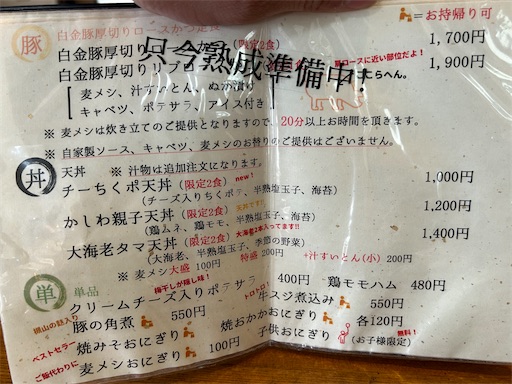 =お持帰り可
豚 白金豚厚切りロースかつ定食
白金豚厚切り (限定2食) 1,700円
白金豚厚切りリブロ 肩ロースに近い部位だよ! 1,900円
只今熟成準備中!
たらへん。
麦メシ、汁すいとん、ぬか漬け
キャベツ、ポテサラ、アイス付き
※ 麦メシは炊き立てのご提供となりますので、20分以上お時間を頂きます。
※ 自家製ソース、キャベツ、麦メシのお替りのご提供はございません。
丼 天丼 ※ 汁物は追加注文になります。
チーちくポ天丼(限定2食) new! 1,000円
(チーズ入りちくポテ、半熟塩玉子、海苔)
かしわ親子天丼(限定2食) 天丼です!! 1,200円
(鶏ムネ、鶏モモ、半熟塩玉子、海苔)
大海老タマ天丼(限定2食) 大海老2本入ってます!! 1,400円
(大海老、半熟塩玉子、季節の野菜)
※ 麦メシ大盛 100円 特盛 200円 +汁すいとん(小) 200円
単 単品 梅干しが隠し味!
クリームチーズ入りポテサラ 400円 鶏モモハム 480円
豚の角煮 550円 トロトロ! 牛スジ煮込み 550円
ベストセラー 焼みそおにぎり 焼おかかおにぎり 各120円
ご飯代わりに 麦メシおにぎり 100円 子供おにぎり 無料! (お子様限定)